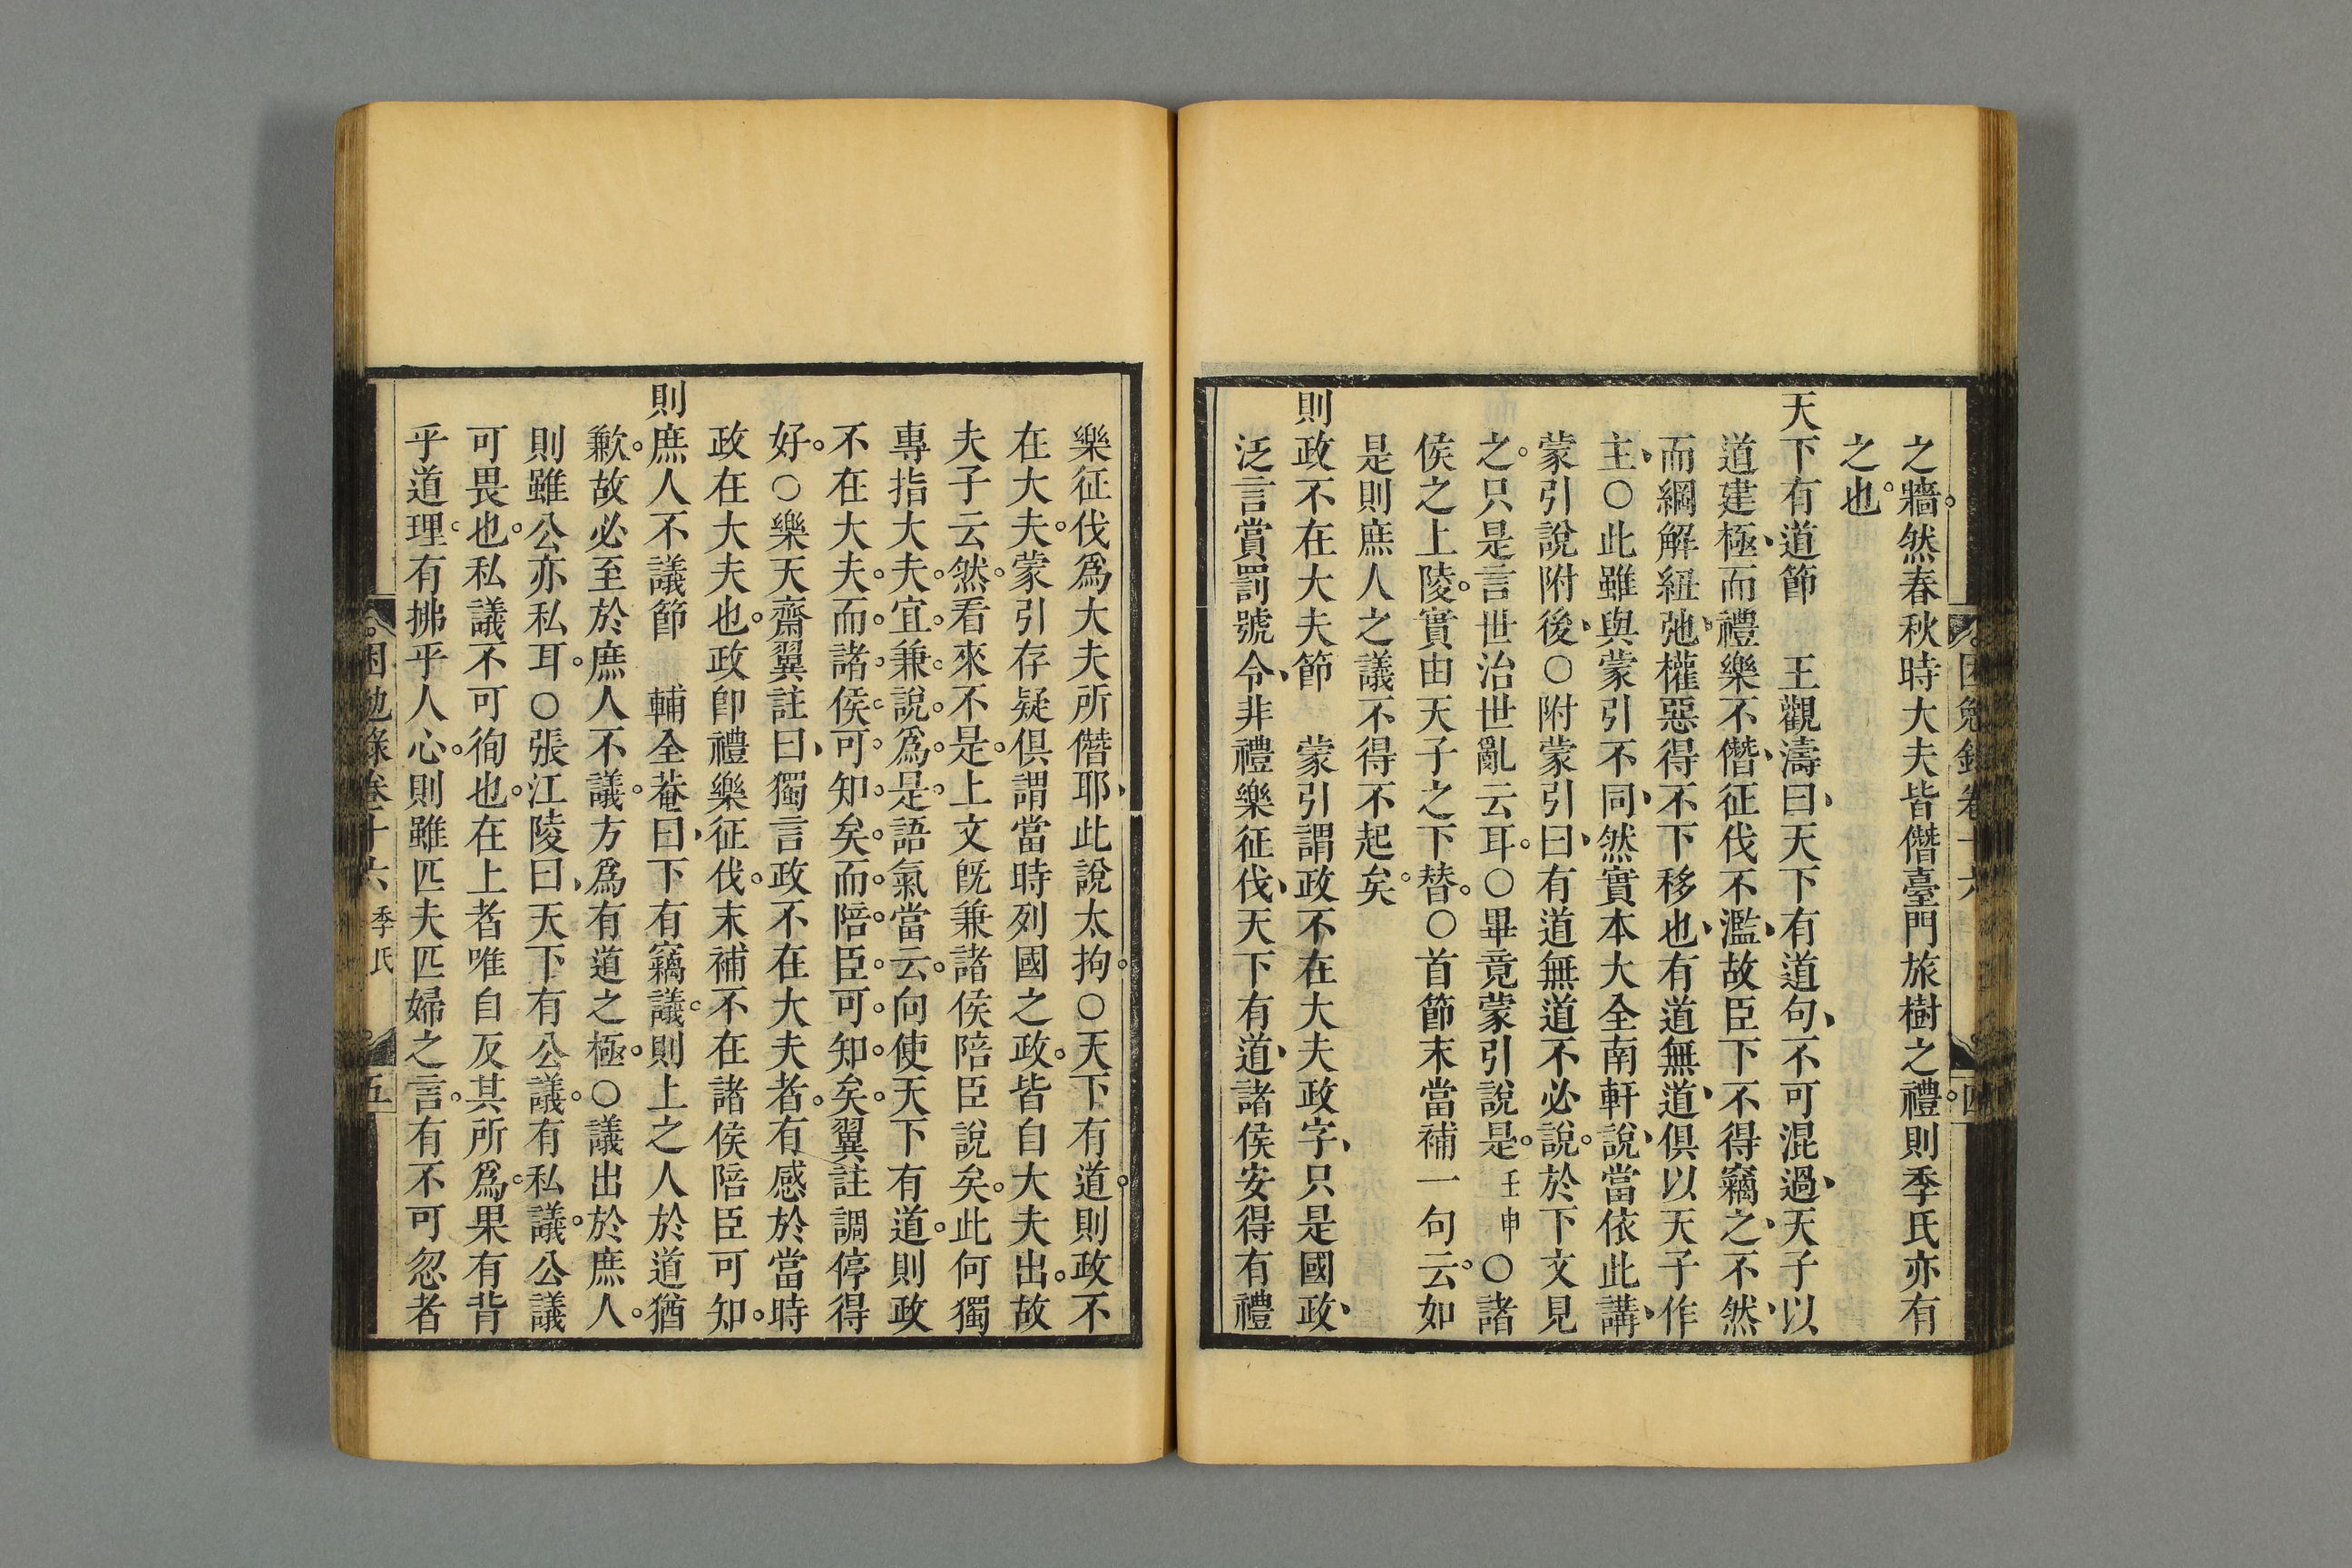 之牆。然春秋時大夫皆僭臺門旅樹之禮。則季氏亦有
之也。
天下有道節　王觀濤曰、天下有道句、不可混過、天子以
道建極、而禮樂不僭、征伐不濫、故臣下不得竊之、不然、
而綱解紐弛、權惡得不下移也、有道無道、俱以天子作
主、○此雖與蒙引不同、然實本大全南軒說、當依此講、
蒙引說附後、○附蒙引曰、有道無道不必說。於下文見
之。只是言世治世亂云耳。○畢竟蒙引說是。壬申○諸
侯之上陵。實由天子之下替。○首節末當補一句云。如
是則庶人之議不得不起矣。
則政不在大夫節　蒙引謂政不在大夫政字、只是國政、
泛言賞罰號令、非禮樂征伐、天下有道、諸侯安得有禮
樂征伐爲大夫所僭耶、此說太拘。○天下有道。則政不
在大夫。蒙引存疑俱謂當時列國之政。皆自大夫出。故
夫子云然。看來不是。上文旣兼諸侯陪臣說矣。此何獨
專指大夫。宜兼說爲是。語氣當云。向使天下有道。則政
不在大夫。而諸侯可知矣。而陪臣可知矣。翼註調停得
好。○樂天齋翼註曰、獨言政不在大夫者。有感於當時
政在大夫也。政卽禮樂征伐。末補不在諸侯陪臣可知。
則庶人不議節　輔全菴曰、下有竊議。則上之人於道猶
歉。故必至於庶人不議。方爲有道之極。○議出於庶人。
則雖公亦私耳。○張江陵曰、天下有公議。有私議。公議
可畏也。私議不可徇也。在上者唯自反其所爲。果有背
乎道理。有拂乎人心。則雖匹夫匹婦之言。有不可忽者
困勉錄卷十六　季氏　五